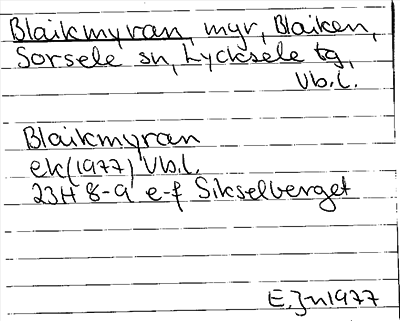 Blaikmyran, myr, Blaiken,
Sorsele sn, Lycksele tg,
Vb.l.
Blaikmyran
ek(1977) Vb.l.
23H 8-9 e-f Sikselberget
E.Jn1977